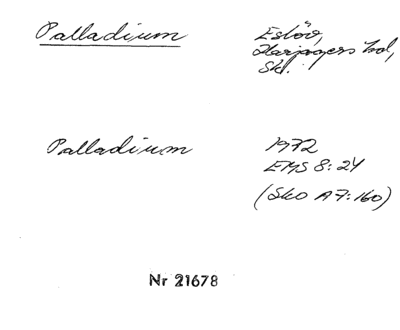 Palladium
Eslöv,
Harjagers hd,
Sk.
Palladium
1972
EMS 8:24
(Sko A7:160)
Nr 21678